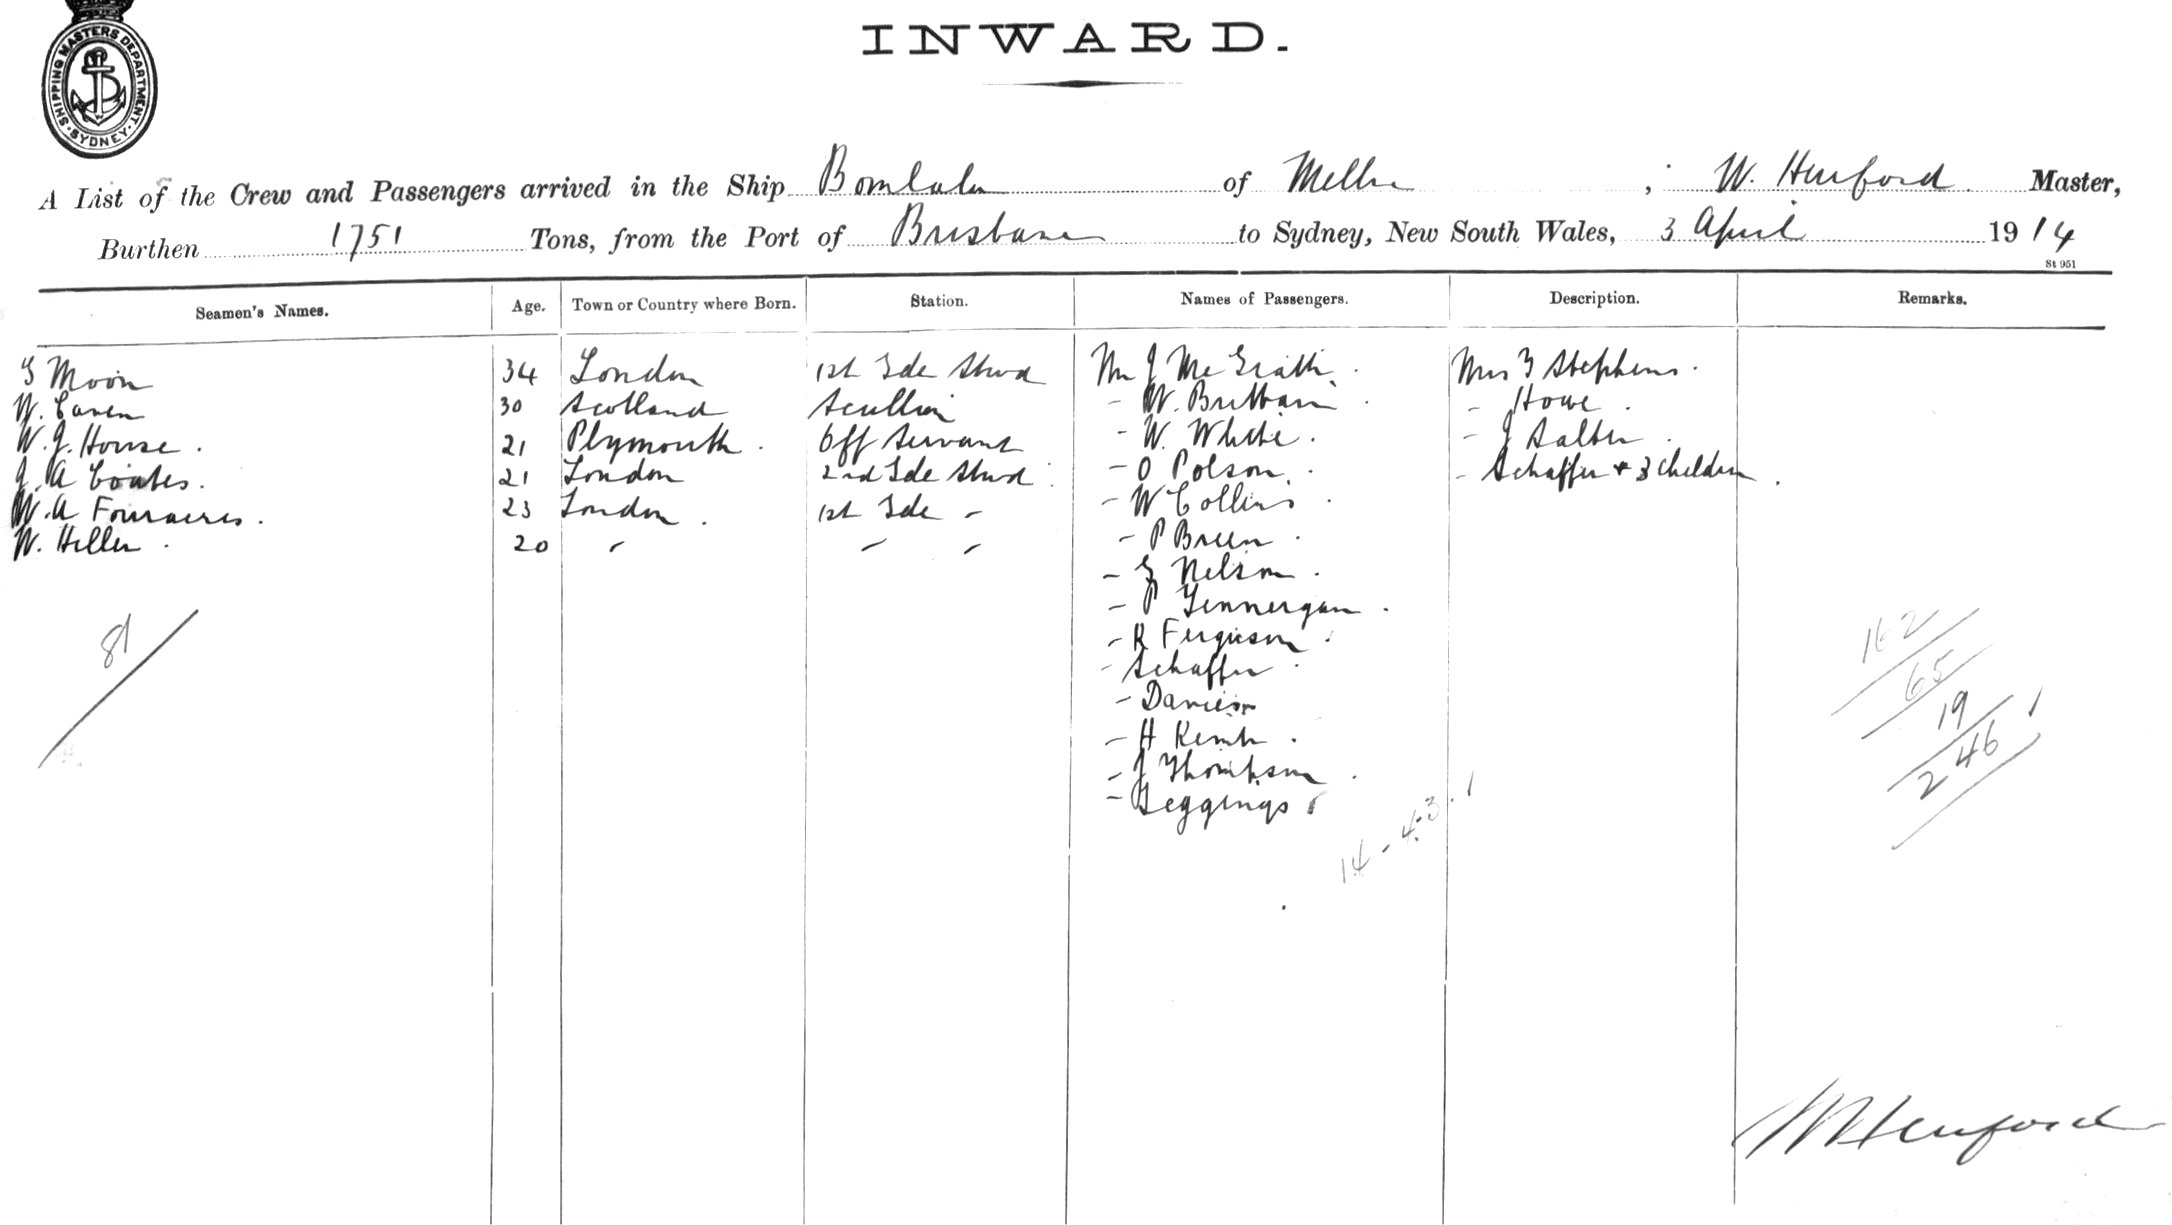 SHIPPING MASTERS DEPARTMENT
SYDNEY
INWARD.
A List of the Crew and Passengers arrived in the Ship Bombala of Melbne ; W. Hurford Master,
Burthen 1751 Tons, from the Port of Brisbane to Sydney, New South Wales, 3 April 1914
St 951
Seamen's Names. Age. Town or Country where Born. Station. Names of Passengers. Description. Remarks.
Moon 34 London 1st Sde Stwd Mr J McGrath Mrs Stephens
W. Caven 30 Scotland Scullion - W. Brittain - Howe
W. J. House 21 Plymouth Off Servant - W. White - J Salter
J. A Coates 21 London 2nd Sde Stwd - O Polson - Schaffer + 3 children
W. A Fouracres 23 London 1st Sde - - W Collins
W. Hiller 20 " " " - P Breen
- Nelson
- P Finnergan
- R Ferguson
- Schaffer
-
- H
- J Thompson
- Leggings
81
162
65
19
246
14-4-3.1
W Hurford